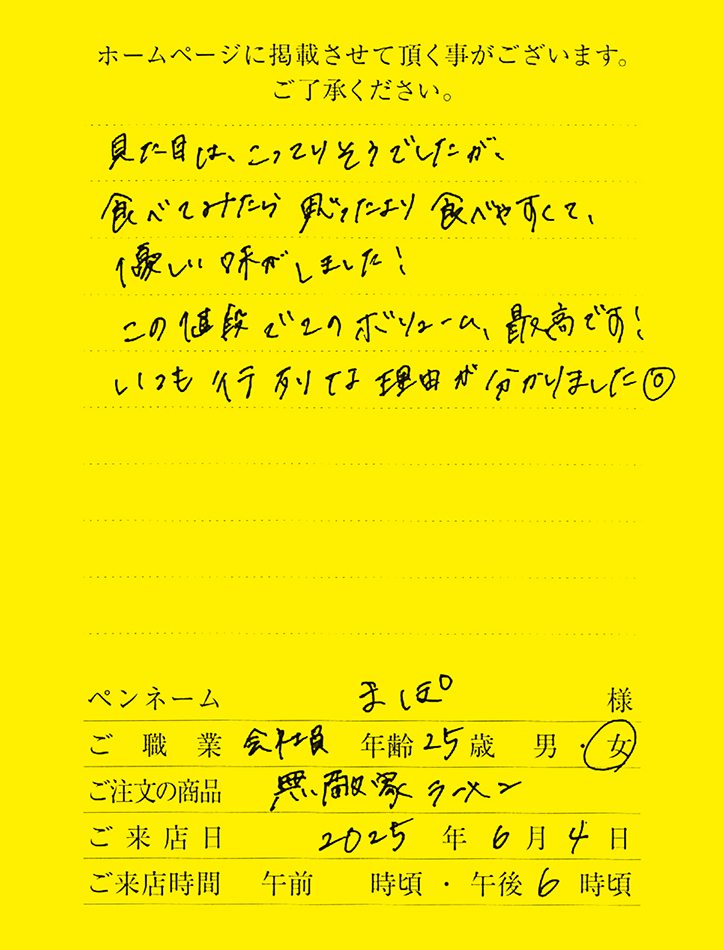 ホームページに掲載させて頂く事がございます。
ご了承ください。
見た目は、こってりそうでしたが、
食べてみたら思ったより食べやすくて、
優しい味がしました！
この値段でこのボリューム、最高です！
いつも行列な理由が分かりました◎
ペンネーム まぽ 様
ご職業 会社員 年齢 25 歳 男・女
ご注文の商品 無敵家ラーメン
ご来店日 2025 年 6 月 4 日
ご来店時間 午前 時頃・午後 6 時頃